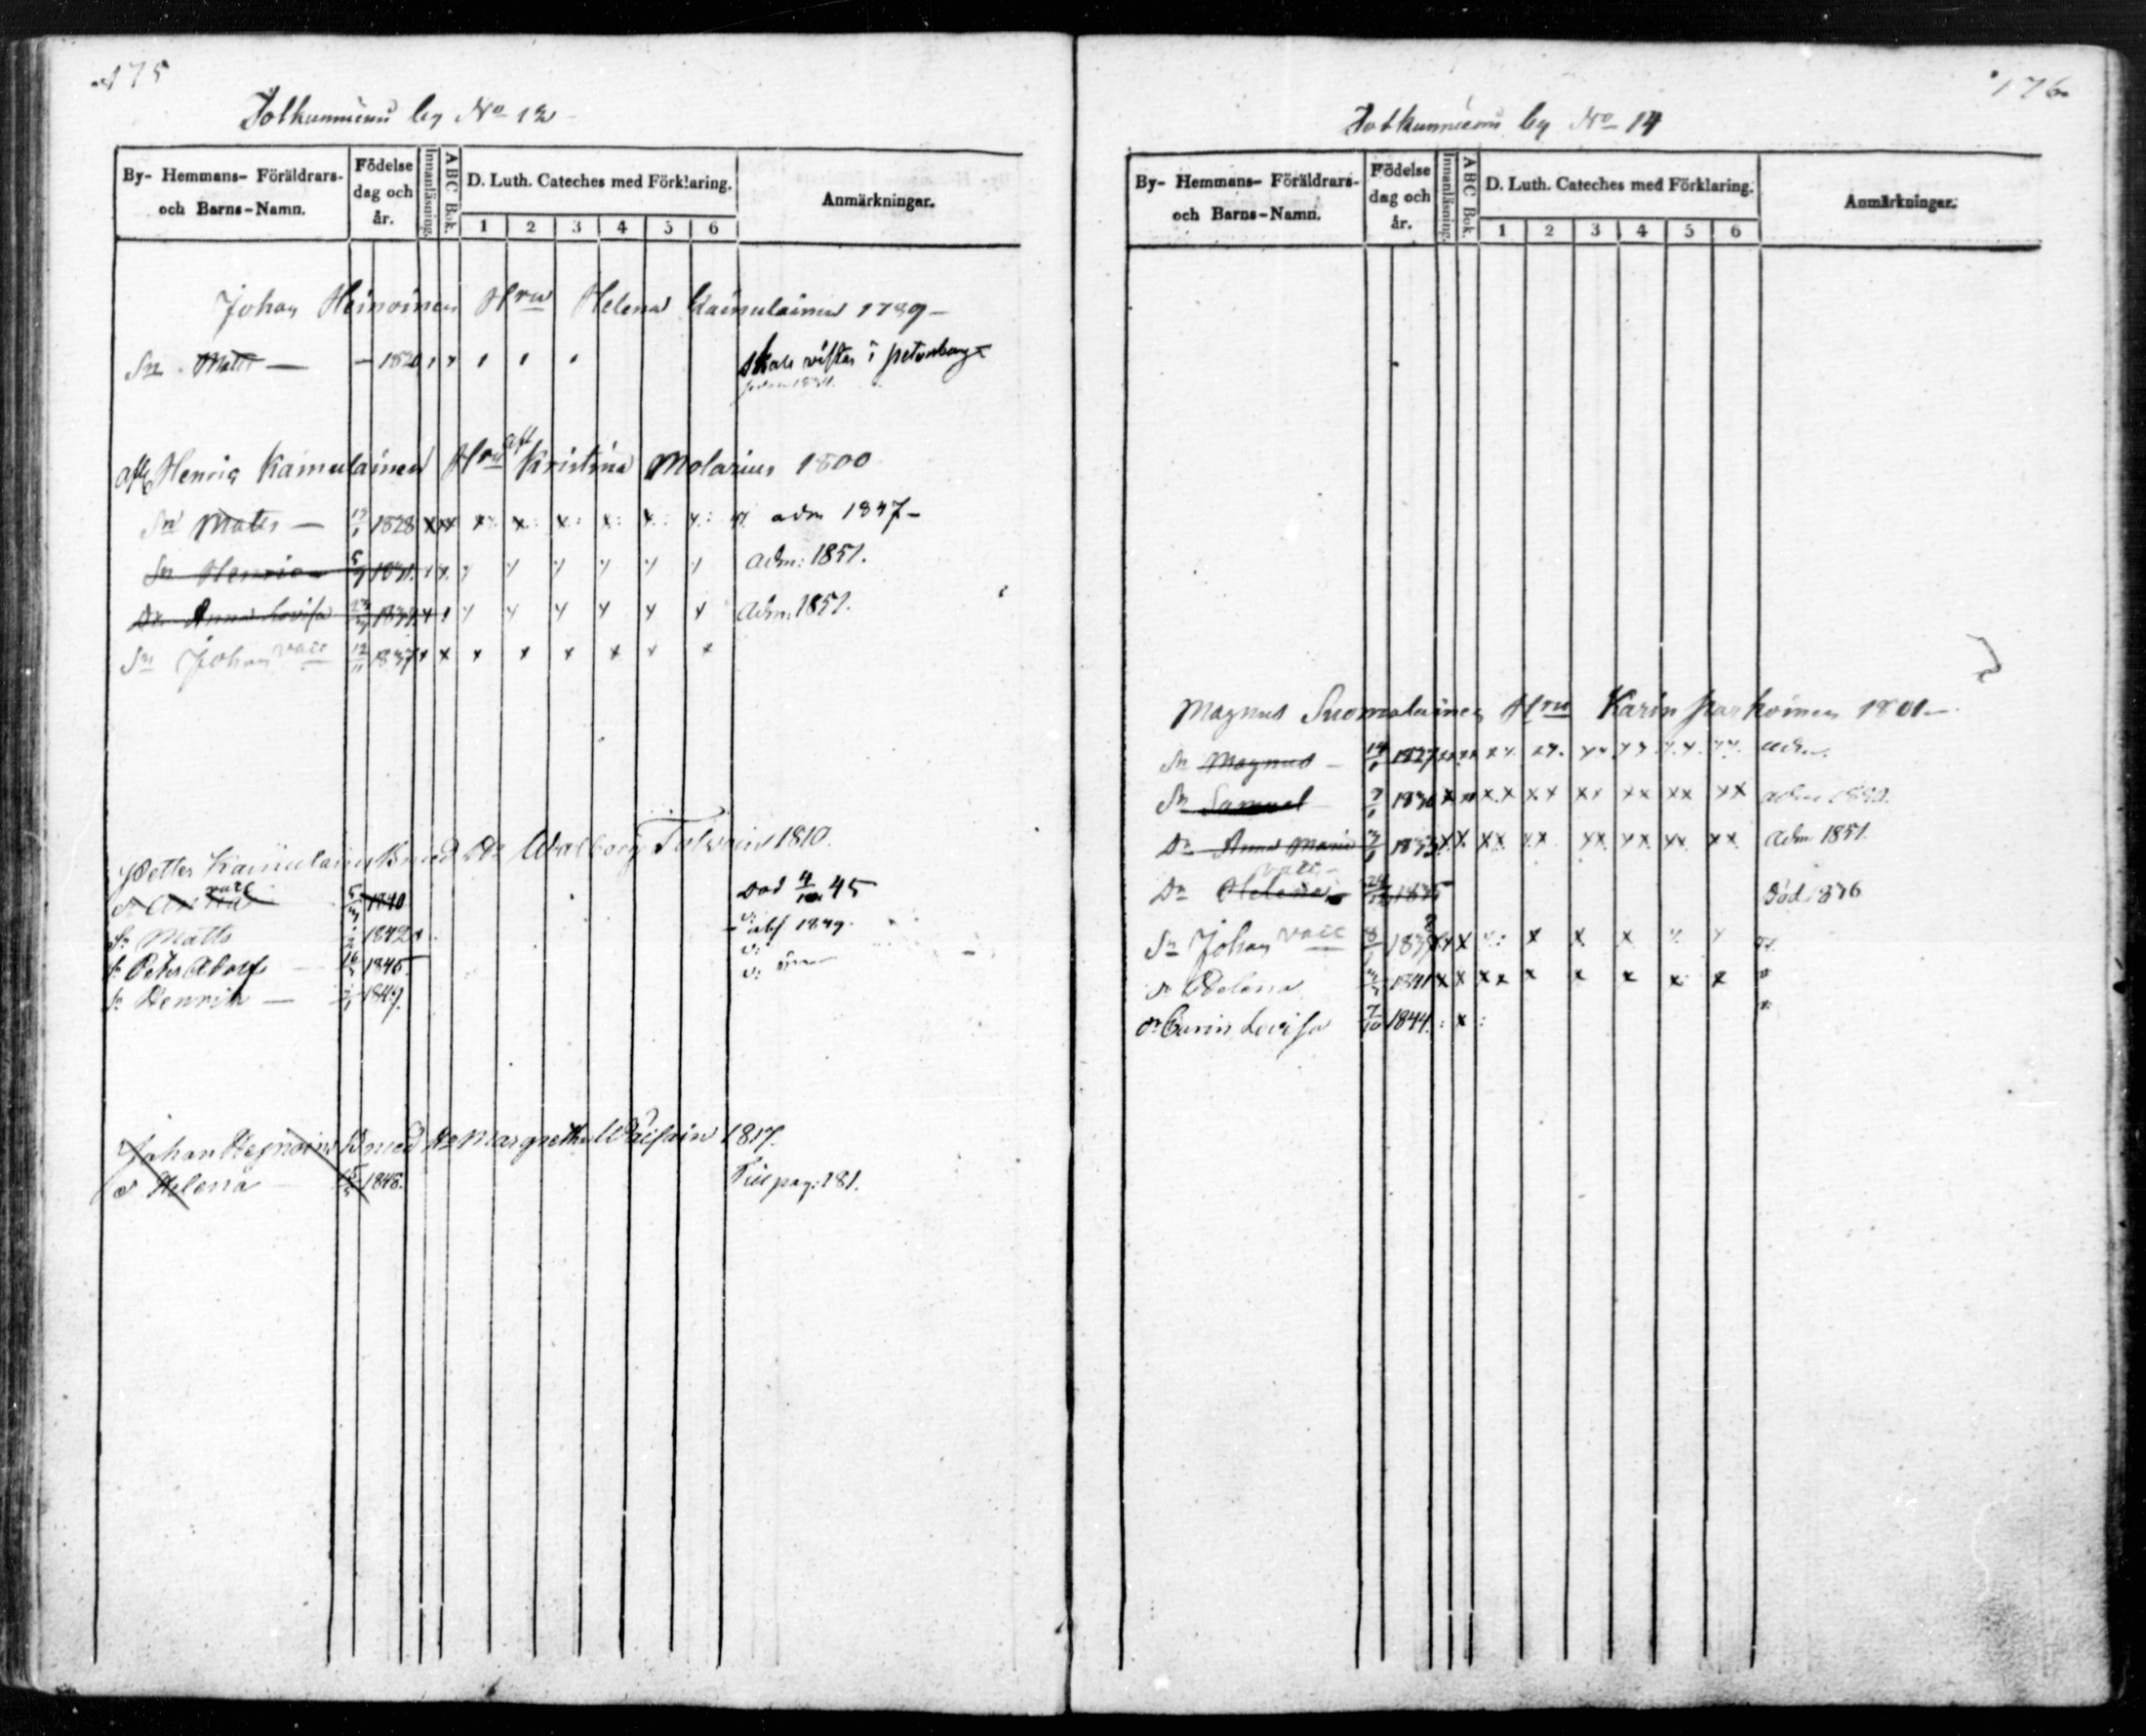 175
Jotkunniemi by No 12
By- Hemmans- Föräldrars- och Barns-Namn.
Födelse dag och år.
Innanläsning.
ABC Bok.
D. Luth. Cateches med Förklaring.
1 2 3 4 5 6
Anmärkningar.
Johan Heinoinen Hru Helena Kainulainen 1789 -
Sn Matts - - 1820 skall vistas i petersburg
afl Henric Kainulainen Hru afl Kristina Molarius 1800
Sn Matts - 1828 x xx x x: x: x: x: x: adm 1847 -
Sn Henric 1831 adm: 1851.
Dr Anna Lovisa 1834 Adm. 1851.
Sn Johan vacc 12/11 1837 x x x x x x x x
Petter Kainulainen B med Hu Walborg 1810.
dr Anna vacc 1840 Död 4/10 45
Sn Matts 1842 abs 1849.
Sn Peter Adolf - 16 1845
Sn Henrik - 1849
Johan Heinoin B med Hu Margretha Wäisäin 1817.
d Helena - 1848. Til pag: 181.
176
Jotkunniemi by No 14
By- Hemmans- Föräldrars- och Barns-Namn.
Födelse dag och år.
Innanläsning.
ABC Bok.
D. Luth. Cateches med Förklaring.
1 2 3 4 5 6
Anmärkningar.
Magnus Suomalainen Hru Karin Parkoinen 1801 -
Sn Magnus - 14/1 1827 adm
Sn Samuel 1830 adm
Dr Anna Maria 1833 Adm 1851.
Dr Helena vacc 1835 Död 1836
Sn Johan vacc 8 1837 x x x x x
Dr Helena 1841 x x x x x x x x x
dr Carin Lovisa 7/10 1844 : x :